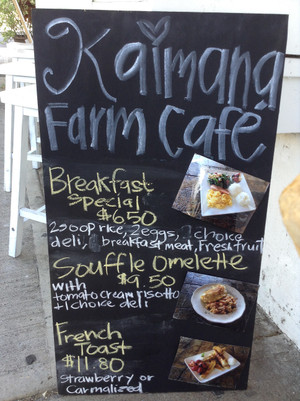 Kaimana
Farm Café
Breakfast
Special
$6.50
2scoop rice, 2eggs, 1choice
deli, 1 breakfast meat, Fresh fruit
Souffle Omelette
with $9.50
tomato cream risotto
+1 choice deli
French
Toast
$11.80
Strawberry or
Carmalized